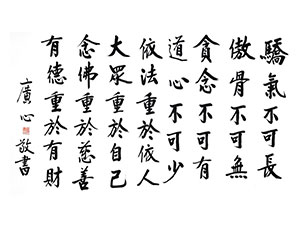 驕氣不可長
傲骨不可無
貪念不可有
道心不可少
依法重於依人
大眾重於自己
念佛重於慈善
有德重於有財
廣心
敬書